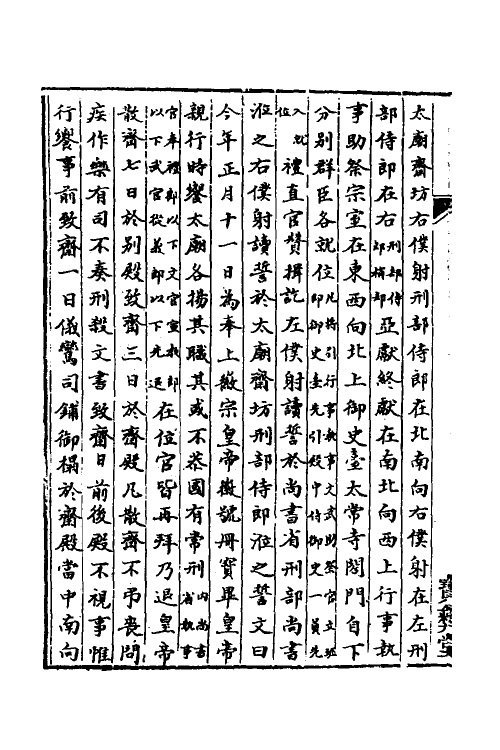 太廟齋坊右僕射刑部侍郎在北南向右僕射在左刑
部侍郎在右刑部侍郎稍却亞獻終獻在南北向西上行事執
事助祭宗室在東西向北上御史臺太常寺閤門自下
分别群臣各就位凡將引行事執事文武助祭官立班即御史臺先引殿中侍御史一員先
入就位禮直官贊揖訖左僕射讀誓於尚書省刑部尚書
涖之右僕射讀誓於太廟齋坊刑部侍郎涖之誓文曰
今年正月十一日為奉上徽宗皇帝徽號冊寶畢皇帝
親行時饗太廟各揚其職其或不恭國有常刑内尚書省執事
官奉禮郎以下文官宣教郎以下武官從義郎以下先退在位官皆再拜乃退皇帝
散齋七日於别殿致齋三日於齋殿凡散齋不弔喪問
疾作樂有司不奏刑殺文書致齋日前後殿不視事惟
行饗事前致齋一日儀鸞司鋪御榻於齋殿當中南向